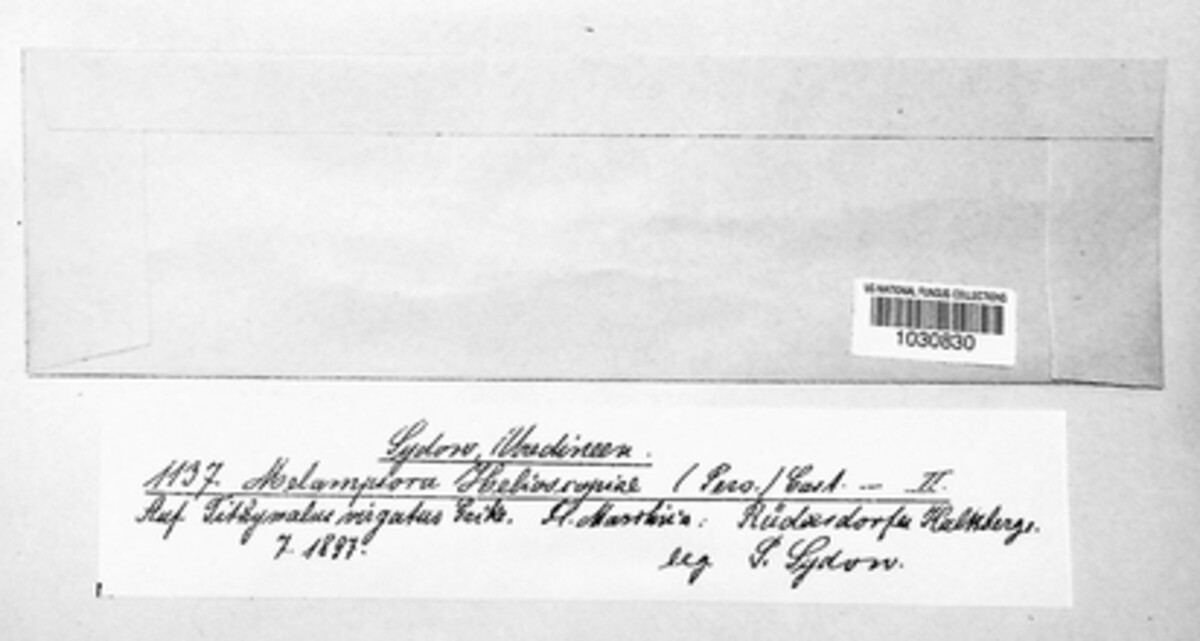 US NATIONAL FUNGUS COLLECTIONS
1030830
Sydow, Uredineen.
1137. Melampsora Helioscopiae (Pers.) Cast. – II.
Auf Tithymalus virgatus Rüdersdorfer Kalkberge.
7. 1897.
leg P. Sydow.